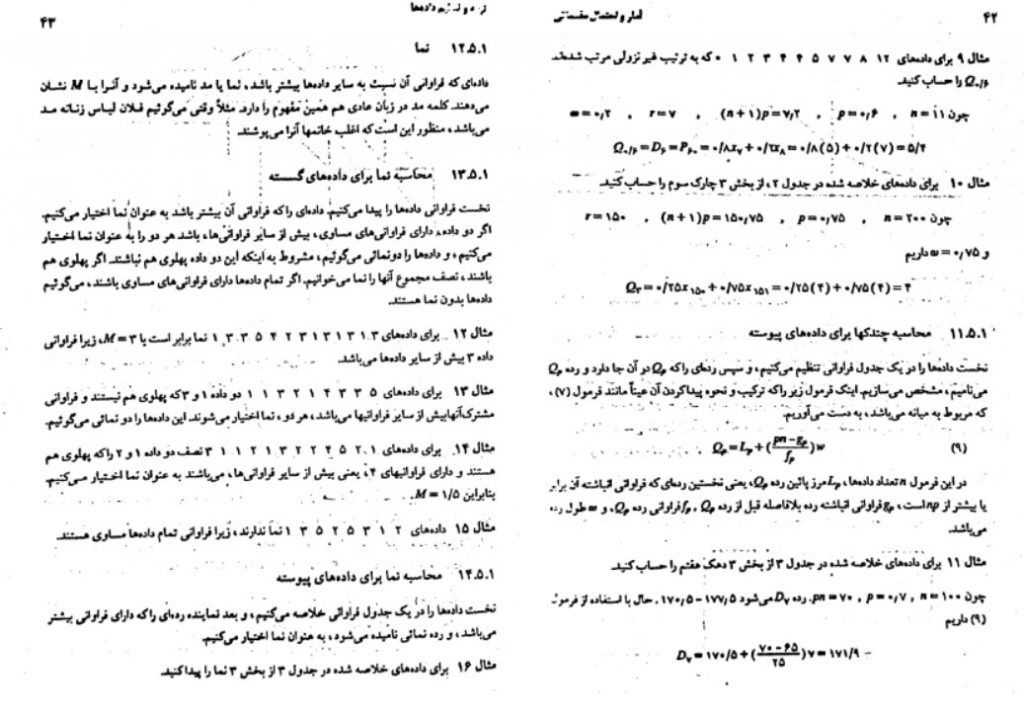 ۴۲
آمار و احتمال مقدماتی
مثال ۹ برای داده‌های ۱۲ ۸ ۷ ۷ ۵ ۴ ۴ ۳ ۲ ۱ ۰ که به ترتیب غیر نزولی مرتب شده‌اند
Q۰/۶ را حساب کنید.
چون n=۱۱ , p=۰٫۶ , (n+۱)p=۷٫۲ , r=۷ , ω=۰٫۲
Q۰/۶=D۶=P۶۰=۰/۸x۷+۰/۲x۸=۰/۸(۵)+۰/۲(۷)=۵/۴
مثال ۱۰ برای داده‌های خلاصه شده در جدول ۲، از بخش ۳ چارک سوم را حساب کنید.
چون n=۲۰۰ , p=۰٫۷۵ , (n+۱)p=۱۵۰٫۷۵ , r=۱۵۰
و ω=۰٫۷۵ داریم
Q۳=۰/۲۵x۱۵۰+۰/۷۵x۱۵۱=۰/۲۵(۴)+۰/۷۵(۴)=۴
۱۱.۵.۱ محاسبه چندکها برای داده‌های پیوسته
نخست داده‌ها را در یک جدول فراوانی تنظیم می‌کنیم، و سپس رده‌ای را که Qp در آن جا دارد و رده Qp
می‌نامیم، مشخص می‌سازیم. اینک فرمول زیر را که ترکیب و نحوه پیدا کردن آن عیناً مانند فرمول (۷)،
که مربوط به میانه می‌باشد، به دست می‌آوریم.
(۹) Qp=Lp+(pn-gp/fp)w
در این فرمول n تعداد داده‌ها، Lp مرز پائین رده Qp، یعنی نخستین رده‌ای که فراوانی انباشته آن برابر
یا بیشتر از np است، gp فراوانی انباشته رده بلافاصله قبل از رده Qp، fp فراوانی رده Qp، و w طول رده
می‌باشد.
مثال ۱۱ برای داده‌های خلاصه شده در جدول ۳ از بخش ۳ دهک هفتم را حساب کنید.
چون n=۱۰۰ , p=۰٫۷ , pn=۷۰. رده D۷ می‌شود ۱۷۷٫۵-۱۷۰٫۵. حال با استفاده از فرمول
(۹) داریم
D۷=۱۷۰/۵+(۷۰-۶۵/۲۵)۷=۱۷۱/۹
۴۳
۱۲.۵.۱ نما
داده‌ای که فراوانی آن نسبت به سایر داده‌ها بیشتر باشد، نما یا مد نامیده می‌شود و آنرا با M نشان
می‌دهند. کلمه مد در زبان عادی هم همین مفهوم را دارد. مثلاً وقتی می‌گوئیم فلان لباس زنانه مد
می‌باشد، منظور این است که اغلب خانمها آنرا می‌پوشند.
۱۳.۵.۱ محاسبه نما برای داده‌های گسسته
نخست فراوانی داده‌ها را پیدا می‌کنیم. داده‌ای را که فراوانی آن بیشتر باشد به عنوان نما اختیار می‌کنیم.
اگر دو داده، دارای فراوانی‌های مساوی، بیش از سایر فراوانی‌ها، باشد هر دو را به عنوان نما اختیار
می‌کنیم، و داده‌ها را دونمائی می‌گوئیم، مشروط به اینکه این دو داده پهلوی هم نباشند. اگر پهلوی هم
باشند، نصف مجموع آنها را نما می‌خوانیم. اگر تمام داده‌ها دارای فراوانی‌های مساوی باشند، می‌گوئیم
داده‌ها بدون نما هستند.
مثال ۱۲ برای داده‌های ۳ ۱ ۳ ۱ ۳ ۱ ۳ ۲ ۴ ۵ ۳ ۳ ۱ نما برابر است با M=۳، زیرا فراوانی
داده ۳ بیش از سایر داده‌ها می‌باشد.
مثال ۱۳ برای داده‌های ۵ ۳ ۳ ۴ ۱ ۲ ۳ ۱ ۱ دو داده ۱ و ۳ که پهلوی هم نیستند و فراوانی
مشترک آنها بیش از سایر فراوانیها می‌باشد، هر دو، نما اختیار می‌شوند. این داده‌ها را دو نمائی می‌گوئیم.
مثال ۱۴ برای داده‌های ۱ ۲ ۵ ۴ ۲ ۲ ۳ ۱ ۲ ۱ ۱ ۳ نصف دو داده ۱ و ۲ را که پهلوی هم
هستند و دارای فراوانیهای ۴، یعنی بیش از سایر فراوانی‌ها، می‌باشند به عنوان نما اختیار می‌کنیم.
بنابراین M=۱/۵.
مثال ۱۵ داده‌های ۲ ۱ ۳ ۵ ۲ ۵ ۳ ۱ نما ندارند، زیرا فراوانی تمام داده‌ها مساوی هستند.
۱۴.۵.۱ محاسبه نما برای داده‌های پیوسته
نخست داده‌ها را در یک جدول فراوانی خلاصه می‌کنیم، و بعد نماینده رده‌ای را که دارای فراوانی بیشتر
می‌باشد، و رده نمائی نامیده می‌شود، به عنوان نما اختیار می‌کنیم.
مثال ۱۶ برای داده‌های خلاصه شده در جدول ۳ از بخش ۳ نما را پیدا کنید.